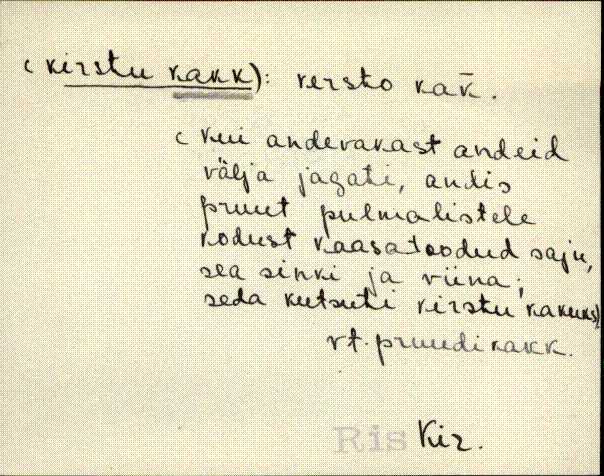 (kirstu kakk): kersko kak̄.
(kui andevakast andeid
välja jagati, andis
pruut pulmalistele
kodust kaasatoodud saju,
sea sinki ja viina;
seda kutsuti kirstu kakuks)
vt. pruudikakk.
Ris Kir.